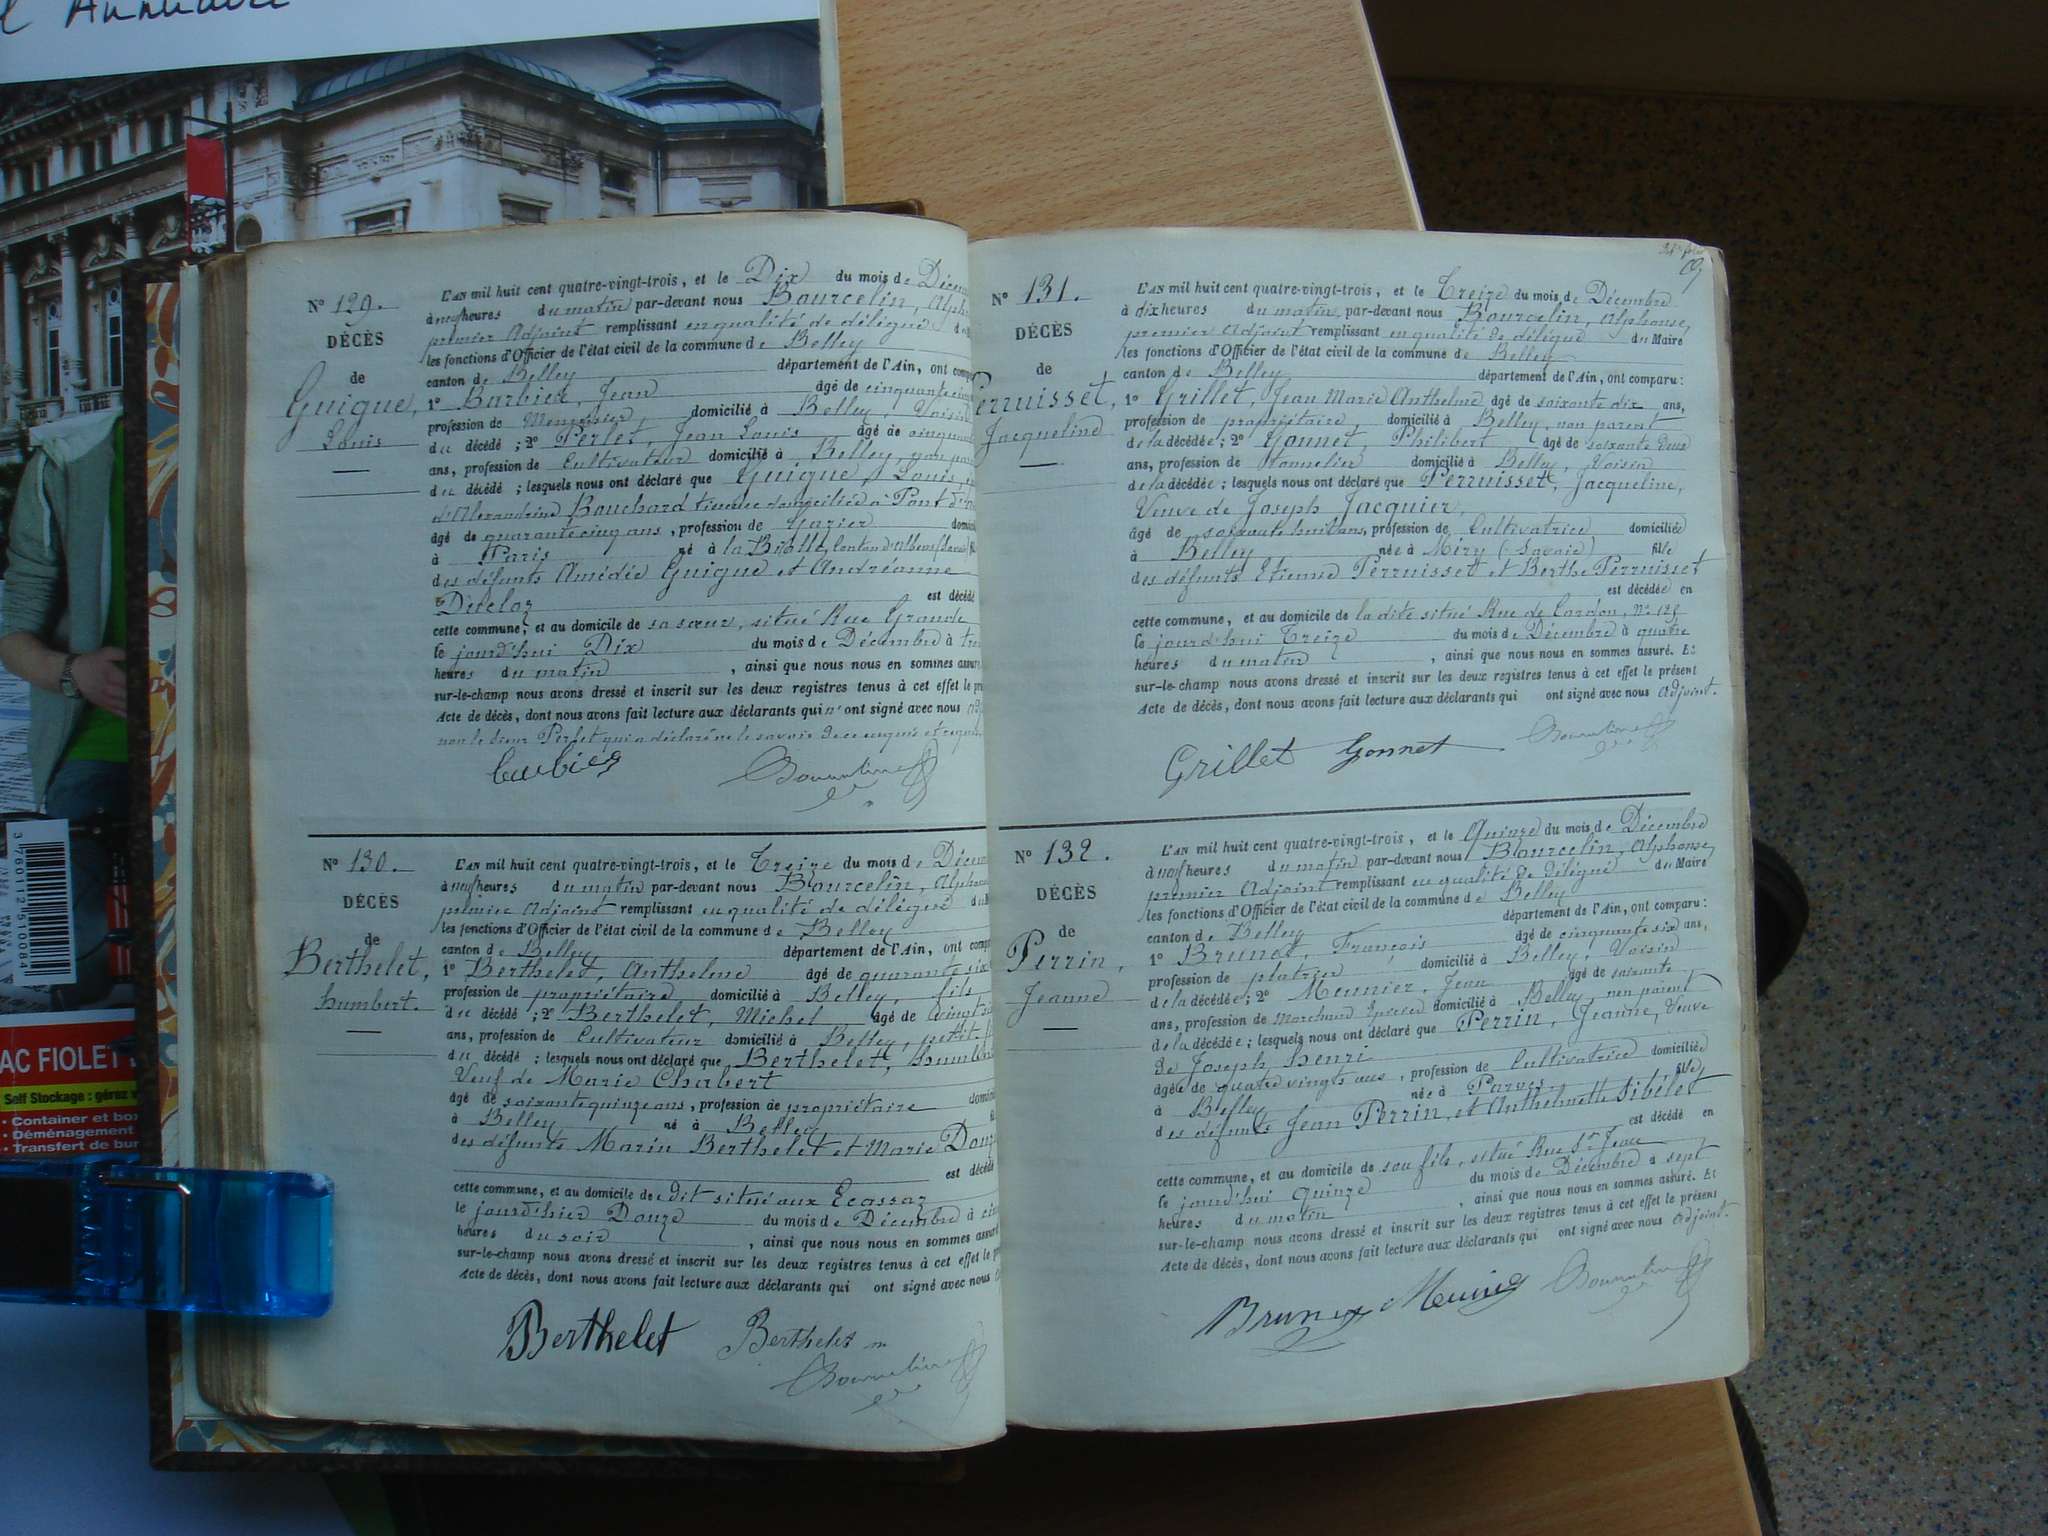 l'Annuaire
N° 129.
DÉCÈS
de
Guigue,
Louis
L'AN mil huit cent quatre-vingt-trois, et le Dix du mois de Décem
à neuf heures du matin par-devant nous Bourcelin, Alph
premier Adjoint remplissant en qualité de délégué d
les fonctions d'Officier de l'état civil de la commune de Belley
canton de Belley département de l'Ain, ont comp
1° Barbier, Jean âgé de cinquante cinq
profession de Menuisier domicilié à Belley, Voisin
du décédé ; 2° Perlet, Jean Louis âgé de cinqua
ans, profession de Cultivateur domicilié à Belley, non par
du décédé ; lesquels nous ont déclaré que Guigue, Louis,
d'Alexandrine Bouchard domiciliée à Pont d'
âgé de quarante cinq ans, profession de Gazier domici
à Paris né à la Biolle, Canton d'Albens (Savoie) fil
des défunts Amédée Guigue et Andréanne
Ducloz est décédé
cette commune, et au domicile de sa sœur, situé Rue Grande
le jourd'hui Dix du mois de Décembre à tro
heures du matin, ainsi que nous nous en sommes assuré
sur-le-champ nous avons dressé et inscrit sur les deux registres tenus à cet effet le pré
Acte de décès, dont nous avons fait lecture aux déclarants qui n' ont signé avec nous adj
non le sieur Perlet qui a déclaré ne le savoir de ce enquis et requis
Barbier
N° 130.
DÉCÈS
de
Berthelet,
humbert.
L'AN mil huit cent quatre-vingt-trois, et le Treize du mois de Décem
à neuf heures du matin par-devant nous Bourcelin, Alphonse
premier Adjoint remplissant en qualité de délégué du
les fonctions d'Officier de l'état civil de la commune de Belley
canton de Belley département de l'Ain, ont comp
1° Berthelet, Anthelme âgé de quarante six
profession de propriétaire domicilié à Belley, fils
du décédé ; 2° Berthelet, Michel âgé de vingt
ans, profession de Cultivateur domicilié à Belley, petit-fi
du décédé ; lesquels nous ont déclaré que Berthelet, humb
Veuf de Marie Chabert
âgé de soixante quinze ans, profession de propriétaire domici
à Belley, né à Belley fi
des défunts Marin Berthelet et Marie Douz
est décédé
cette commune, et au domicile de dit situé aux Ecassaz
le jourd'hier Douze du mois de Décembre à
heures du soir, ainsi que nous nous en sommes assuré
sur-le-champ nous avons dressé et inscrit sur les deux registres tenus à cet effet le p
Acte de décès, dont nous avons fait lecture aux déclarants qui ont signé avec nous
Berthelet Berthelet m
N° 131.
DÉCÈS
de
Perruisset,
Jacqueline
L'AN mil huit cent quatre-vingt-trois, et le Treize du mois de Décembre
à dix heures du matin, par-devant nous Bourcelin, Alphonse,
premier Adjoint remplissant en qualité de délégué du Maire
les fonctions d'Officier de l'état civil de la commune de Belley
canton de Belley département de l'Ain, ont comparu :
1° Grillet, Jean Marie Anthelme âgé de soixante dix ans,
profession de propriétaire domicilié à Belley, non parent
de la décédée ; 2° Gonnet, Philibert âgé de soixante deux
ans, profession de tonnelier domicilié à Belley, Voisin
de la décédée ; lesquels nous ont déclaré que Perruisset, Jacqueline,
Veuve de Joseph Jacquier,
âgé de soixante huit ans, profession de Cultivatrice domiciliée
à Belley née à Méry (Savoie) fille
des défunts Etienne Perruisset et Berthe Perruisset
est décédée en
cette commune, et au domicile de la dite situé Rue de Lardon, N°
le jourd'hui Treize du mois de Décembre à quatre
heures du matin, ainsi que nous nous en sommes assuré. Et
sur-le-champ nous avons dressé et inscrit sur les deux registres tenus à cet effet le présent
Acte de décès, dont nous avons fait lecture aux déclarants qui ont signé avec nous Adjoint.
Grillet Gonnet
N° 132.
DÉCÈS
de
Perrin,
Jeanne
L'AN mil huit cent quatre-vingt-trois, et le Quinze du mois de Décembre
à neuf heures du matin par-devant nous Bourcelin, Alphonse,
premier Adjoint remplissant en qualité de délégué du Maire
les fonctions d'Officier de l'état civil de la commune de Belley
canton de Belley département de l'Ain, ont comparu :
1° Brunet, François âgé de cinquante six ans,
profession de platrier domicilié à Belley, Voisin
de la décédée ; 2° Meunier, Jean âgé de soixante
ans, profession de Marchand Epicier domicilié à Belley, non parent
de la décédée ; lesquels nous ont déclaré que Perrin, Jeanne, Veuve
de Joseph henri
âgée de quatre vingts ans, profession de Cultivatrice domiciliée
à Belley née à Parves fille
des défunts Jean Perrin, et Anthelmette Sibélet
est décédé en
cette commune, et au domicile de son fils, situé Rue St Jean
le jourd'hui quinze du mois de Décembre à sept
heures du matin, ainsi que nous nous en sommes assuré. Et
sur-le-champ nous avons dressé et inscrit sur les deux registres tenus à cet effet le présent
Acte de décès, dont nous avons fait lecture aux déclarants qui ont signé avec nous Adjoint.
Brunet Meunier
AC FIOLET
Self Stockage : gérez v
• Container et box
• Déménagement
• Transfert de bur